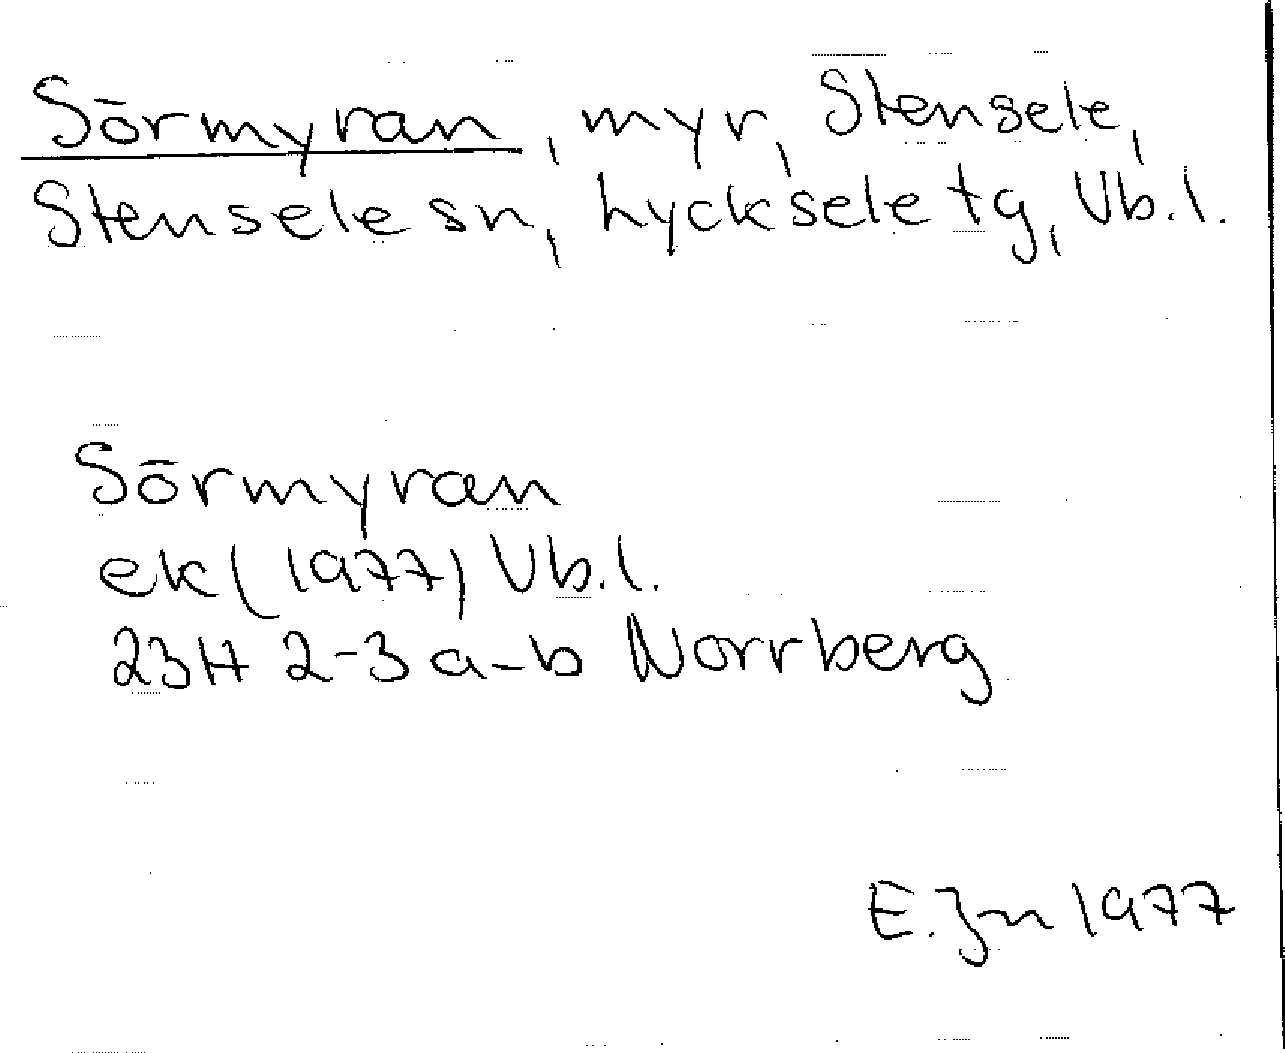 Sörmyran, myr, Stensele,
Stensele sn, Lycksele tg, Vb.l.
Sörmyran
ek (1977) Vb.l.
23H 2-3 a-b Norrberg
E. Jn 1977